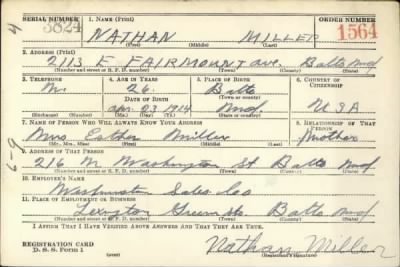 SERIAL NUMBER 1. NAME (Print) ORDER NUMBER
3824 NATHAN MILLER 1564
(First) (Middle) (Last)
2. ADDRESS (Print)
2113 E FAIRMOUNT Ave. Balto Md
(Number and street or R. F. D. number) (Town) (County) (State)
3. TELEPHONE 4. AGE IN YEARS 5. PLACE OF BIRTH 6. COUNTRY OF CITIZENSHIP
26. Balto
DATE OF BIRTH
Apr. 23 1914 Md. U S A
(Exchange) (Number) (Mo.) (Day) (Yr.) (State or country)
7. NAME OF PERSON WHO WILL ALWAYS KNOW YOUR ADDRESS 8. RELATIONSHIP OF THAT PERSON
Mrs Esther Miller Mother
(Mr., Mrs., Miss) (First) (Middle) (Last)
9. ADDRESS OF THAT PERSON
216 N Washington St Balto Md
(Number and street or R. F. D. number) (Town) (County) (State)
10. EMPLOYER'S NAME
Washington Sales Co
11. PLACE OF EMPLOYMENT OR BUSINESS
Lexington Balto Md
(Number and street or R. F. D. number) (Town) (County) (State)
I AFFIRM THAT I HAVE VERIFIED ABOVE ANSWERS AND THAT THEY ARE TRUE.
REGISTRATION CARD
D. S. S. Form 1 Nathan Miller
(Registrant's signature)